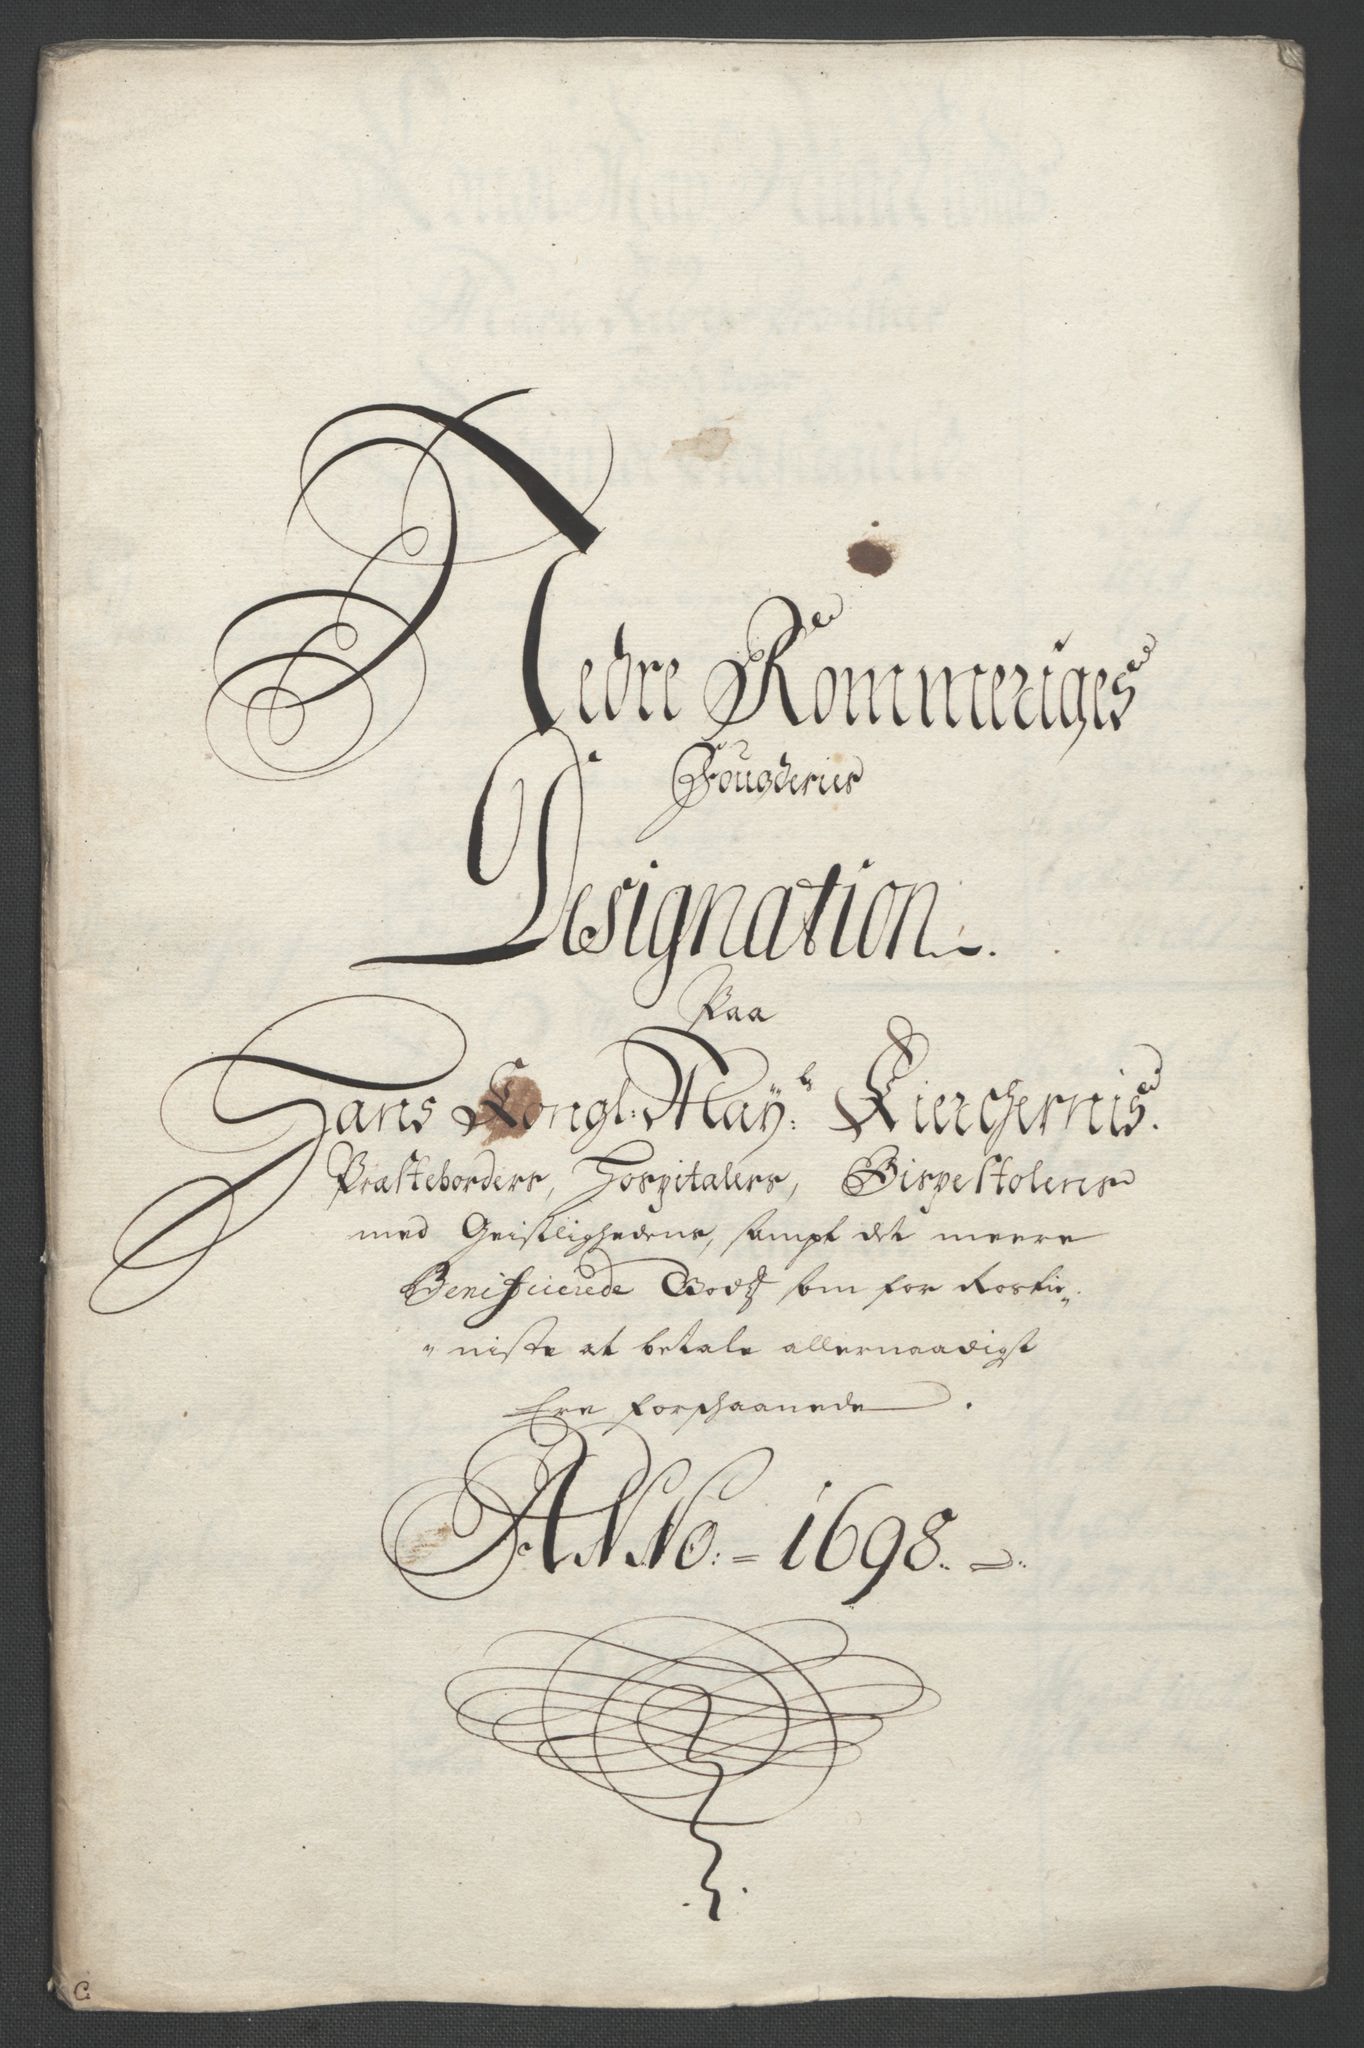 Nedre Rommeriges
Fougderies
Designation.
Paa
Hans Kongl: Mayts: Kierchernis.
Præsteborders, Hospitalers, Bispestolens
med Geistlighedens, sampt det meere
Benificierede Godtz som for Rostie„
„niste at betale allernaadigst
Ere forschaanede.
ANNo: = 1698.
C